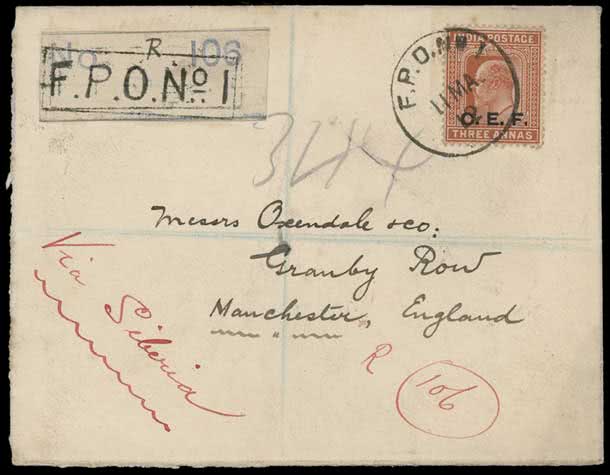 No. R. 106
F.P.O. No 1
F.P.O. No 1
11 MA
INDIA POSTAGE
C. E. F.
THREE ANNAS
344
Messrs Oxendale & Co:
Granby Row
Manchester, England
Via Siberia
R 106